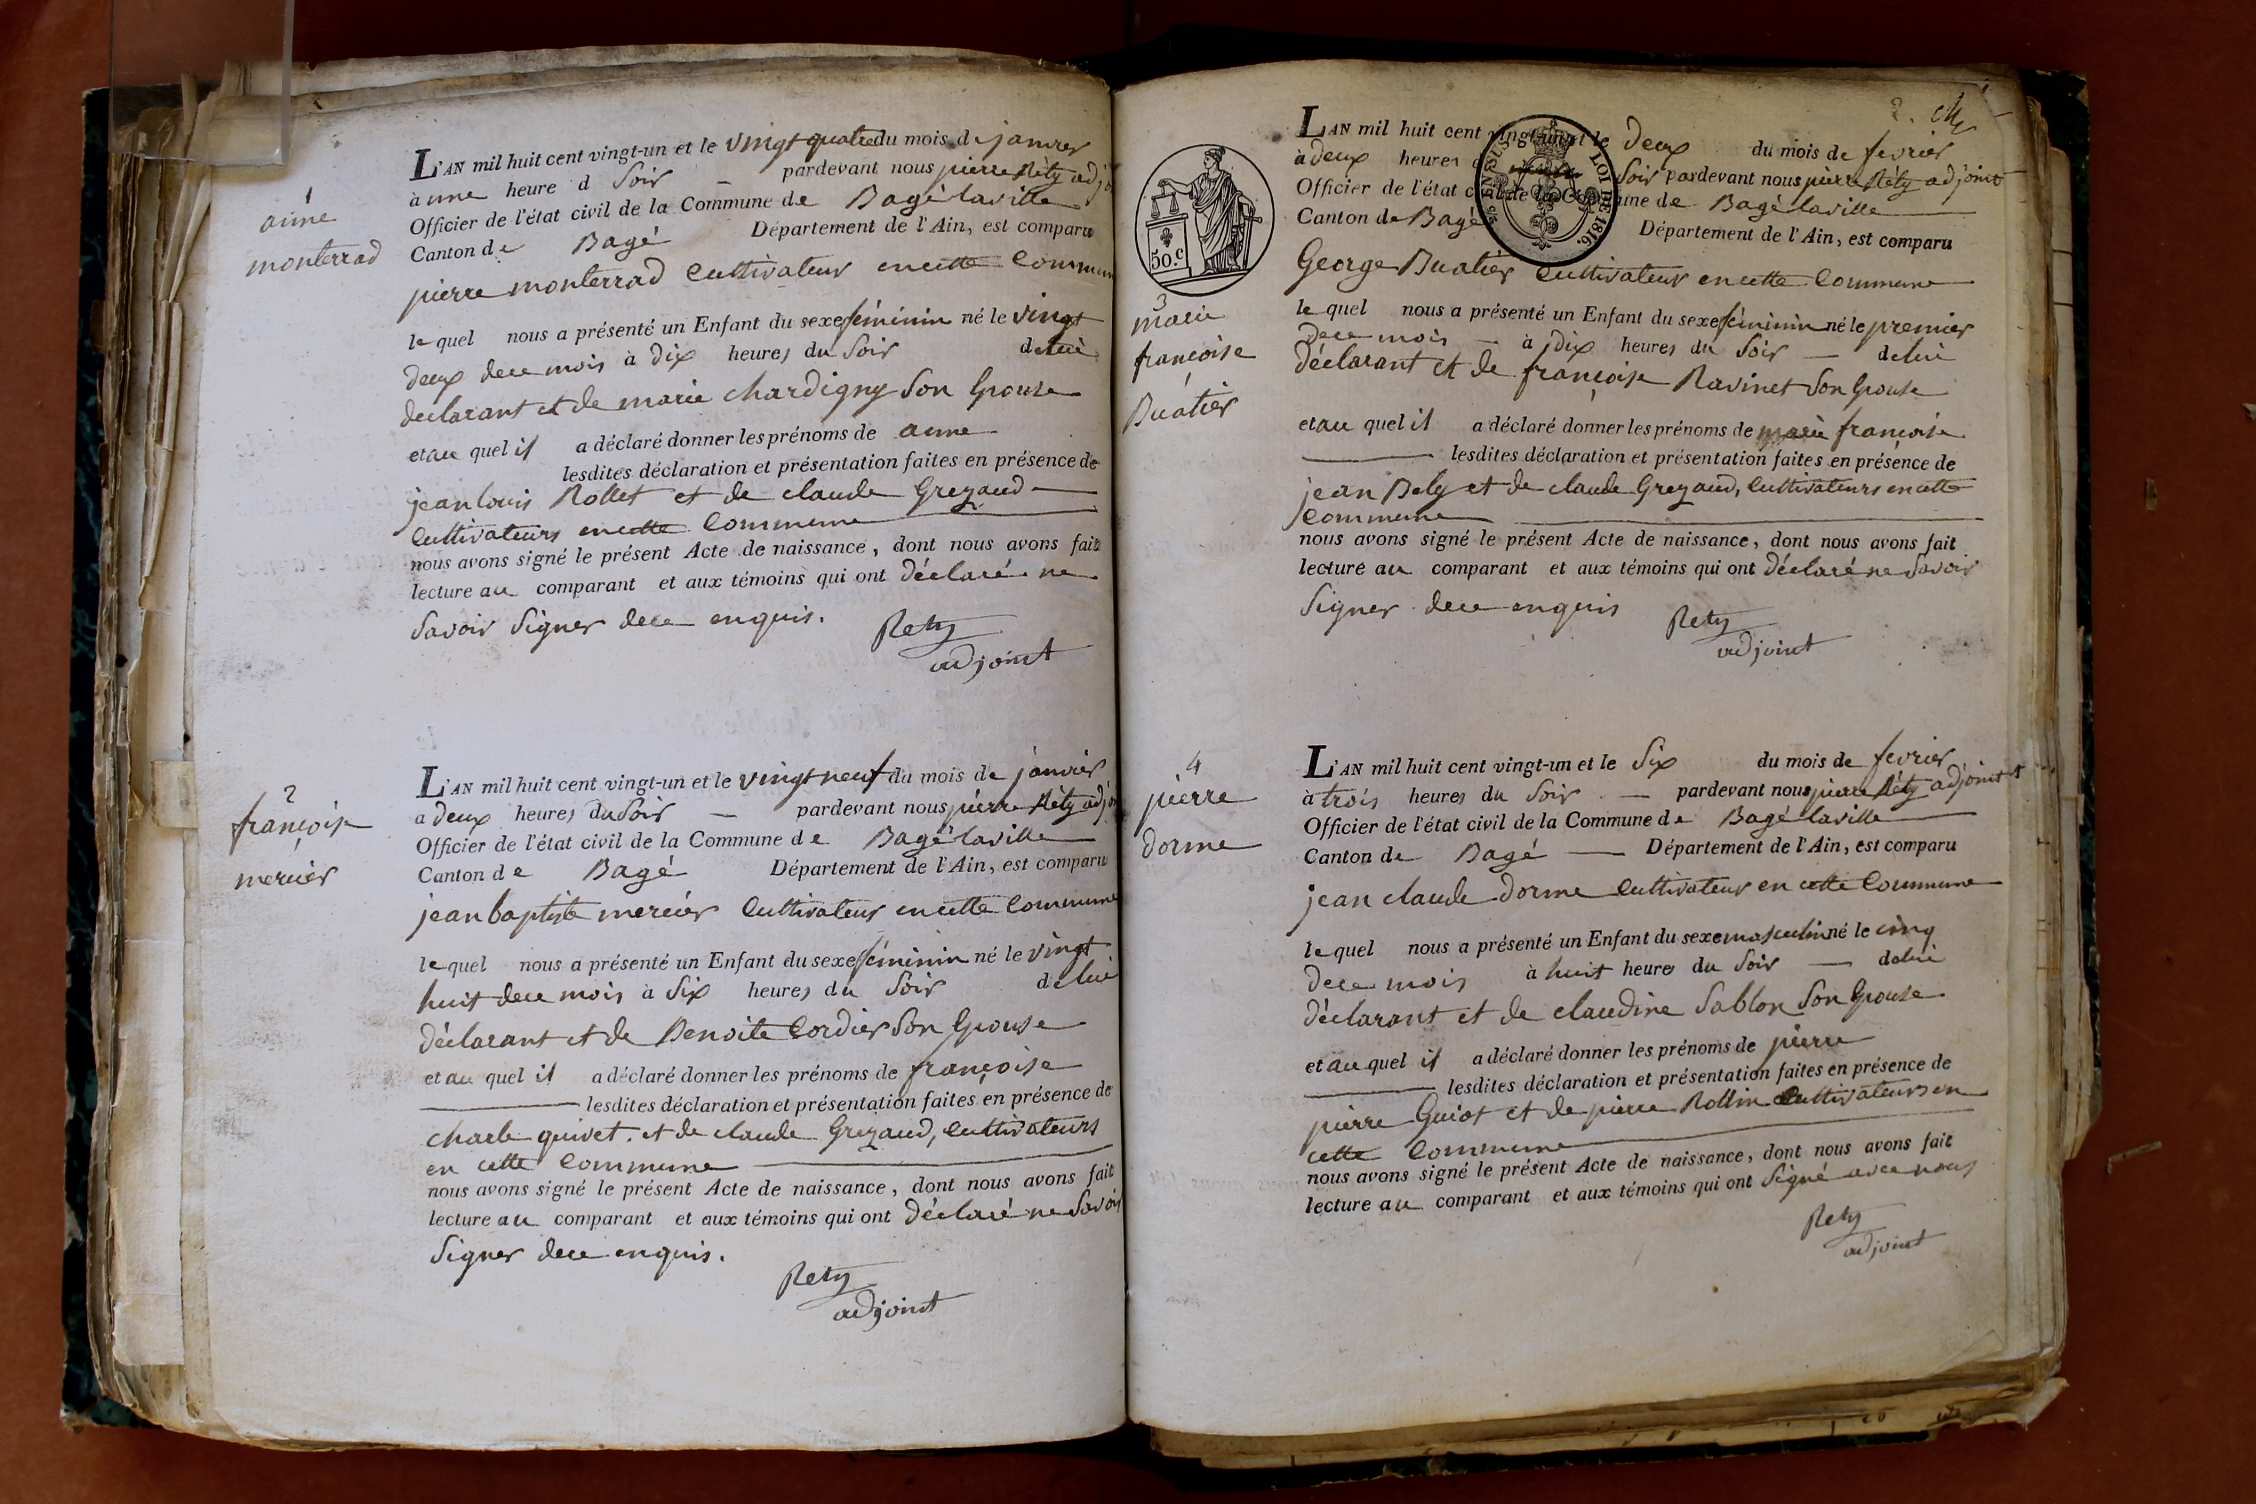 1
anne
monterrad
L'AN mil huit cent vingt-un et le vingt quatre du mois de janvier
à une heure d Soir — pardevant nous pierre Réty adjo
Officier de l'état civil de la Commune de Bagé laville
Canton de Bagé Département de l'Ain, est comparu
pierre monterrad Cultivateur en cette Commun
le quel nous a présenté un Enfant du sexe féminin né le vingt
deux de ce mois à dix heures du Soir de lui
declarant et de marie chardigny Son Epouse
et au quel il a déclaré donner les prénoms de anne
lesdites déclaration et présentation faites en présence de
jean louis Rollet et de claude Grezaud
Cultivateurs en cette Commune
nous avons signé le présent Acte de naissance, dont nous avons fait
lecture au comparant et aux témoins qui ont déclaré ne
Savoir Signer de ce enquis.
Rety
adjoint
2
françoise
mercier
L'AN mil huit cent vingt-un et le vingt neuf du mois de janvier
a deux heures du Soir — pardevant nous pierre Réty adjo
Officier de l'état civil de la Commune de Bagé laville
Canton de Bagé Département de l'Ain, est comparu
jean baptiste mercier Cultivateur en cette Commune
le quel nous a présenté un Enfant du sexe féminin né le vingt
huit de ce mois à Six heures du Soir de lui
déclarant et de Benoite Cordier Son Epouse
et au quel il a déclaré donner les prénoms de françoise
lesdites déclaration et présentation faites en présence de
charle quivet. et de claude Grezaud, Cultivateurs
en cette Commune
nous avons signé le présent Acte de naissance, dont nous avons fait
lecture au comparant et aux témoins qui ont déclaré ne Savoir
Signer de ce enquis.
Rety
adjoint
2.
50.c
EN SUS LOI DE 1816.
3
marie
françoise
Buatier
L'AN mil huit cent vingt-un et le Deux du mois de fevrier
à deux heures Soir pardevant nous pierre Réty adjoint
Officier de l'état civil de la Commune de Bagé laville
Canton de Bagé Département de l'Ain, est comparu
George Buatier Cultivateur en cette Commune
le quel nous a présenté un Enfant du sexe féminin né le premier
de ce mois — à dix heures du Soir — de lui
déclarant et de françoise Ravinet Son Epouse
et au quel il a déclaré donner les prénoms de marie françoise
lesdites déclaration et présentation faites en présence de
jean Bely et de claude Grezaud, Cultivateurs en cette
Commune
nous avons signé le présent Acte de naissance, dont nous avons fait
lecture au comparant et aux témoins qui ont déclaré ne Savoir
Signer de ce enquis
Rety
adjoint
4
pierre
dorme
L'AN mil huit cent vingt-un et le Six du mois de fevrier
à trois heures du Soir — pardevant nous pierre Réty adjoint
Officier de l'état civil de la Commune de Bagé laville
Canton de Bagé — Département de l'Ain, est comparu
jean claude dorme Cultivateur en cette Commune
le quel nous a présenté un Enfant du sexe masculin né le cinq
de ce mois à huit heures du Soir — de lui
déclarant et de claudine Sablon Son Epouse
et au quel il a déclaré donner les prénoms de pierre
lesdites déclaration et présentation faites en présence de
pierre Guiot et de pierre Rollin Cultivateurs en
cette Commune
nous avons signé le présent Acte de naissance, dont nous avons fait
lecture au comparant et aux témoins qui ont Signé avec nous
Rety
adjoint